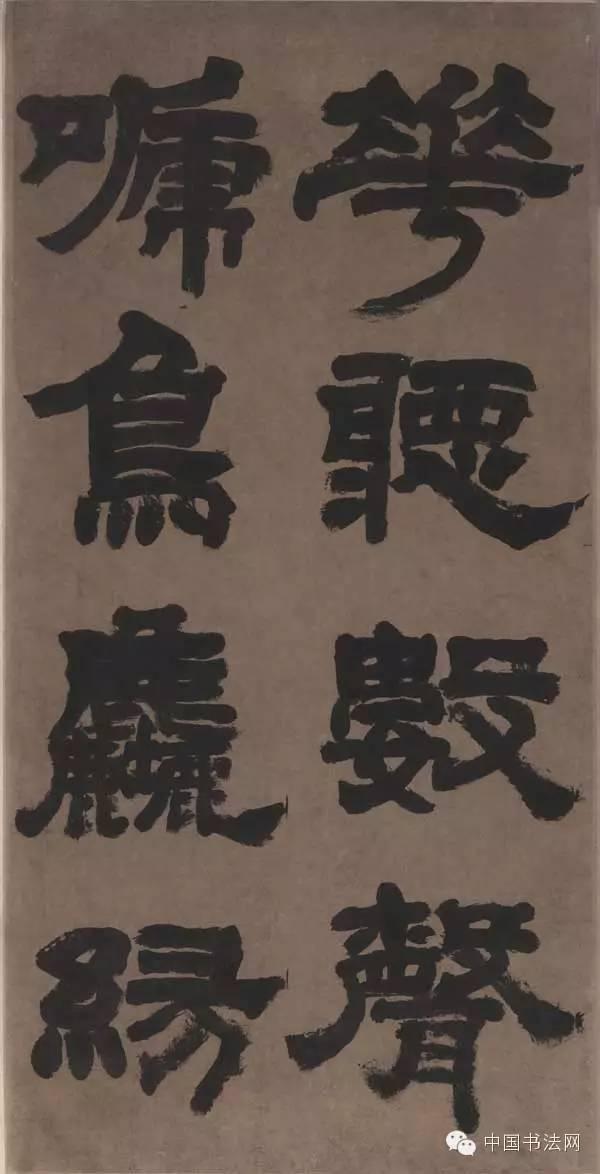 華聽數聲
嗁鳥麤緣
中国书法网